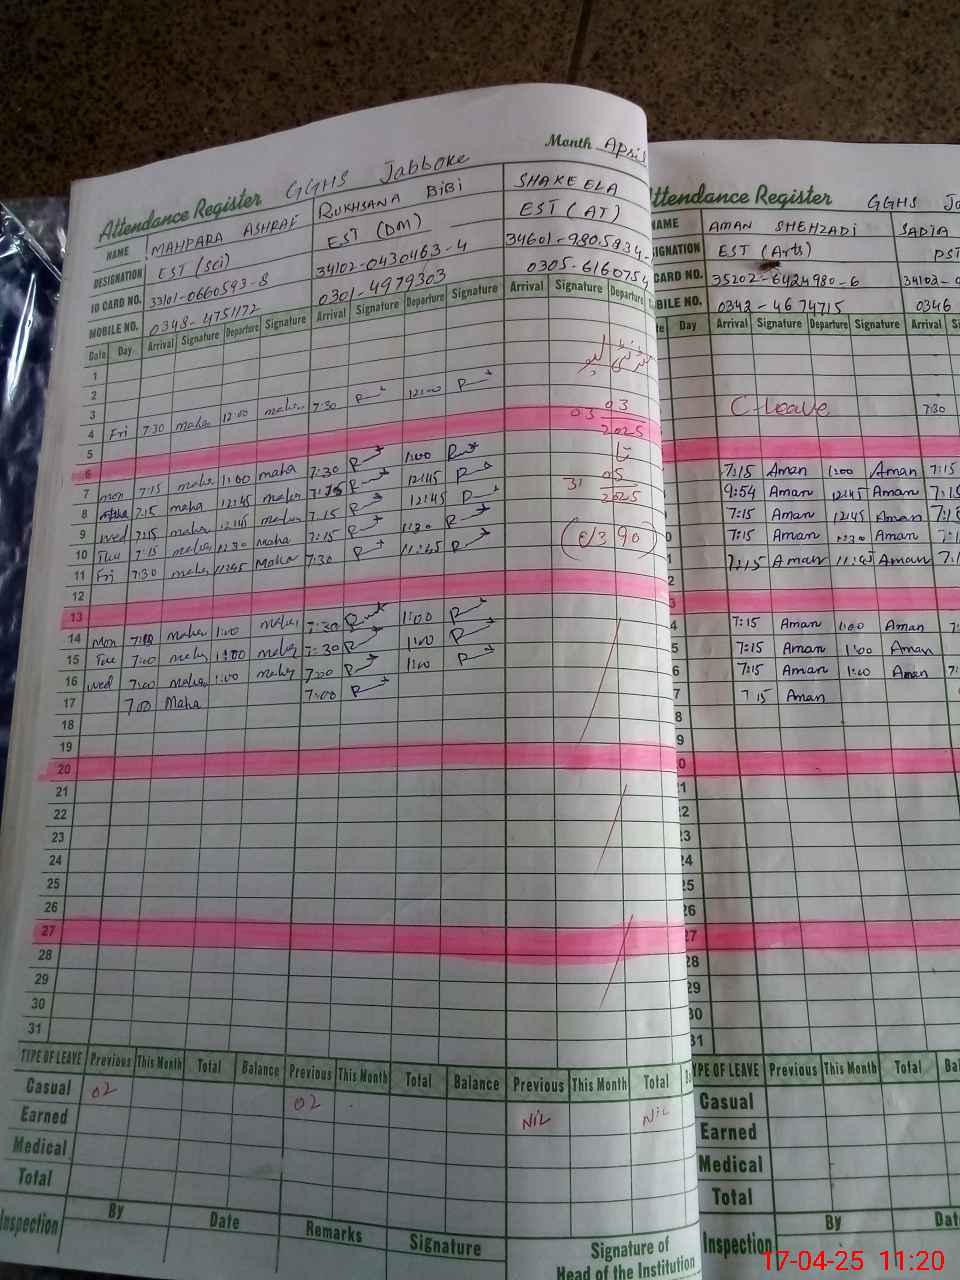 Month April
Attendance Register GGHS Jabboke
NAME MAHPARA ASHRAF RUKHSANA BIBI SHAKEELA
DESIGNATION EST (sci) EST (DM) EST (AT)
ID CARD NO. 33101-0660593-8 34102-0430463-4 34601-9805834-
MOBILE NO. 0348-4751172 0301-4979303 0305-6160754
Date Day Arrival Signature Departure Signature Arrival Signature Departure Signature Arrival Signature Departure
1
2
3
4 Fri 7:30 maha 12:00 maha 7:30 12:00 03 03 2025
5
6
7 mon 7:15 maha 1:00 maha 7:30 1:00
8 7:15 maha 12:45 maha 12:45 31 05 2025
9 wed 7:15 maha 12:45 maha 7:15 12:45
10 Thu 7:15 maha 12:30 maha 7:15 11:30 390
11 Fri 7:30 maha 11:45 Maha 7:30 11:45
12
13
14 Mon maha 1:00 maha 7:30 1:00
15 Tue 7:00 1:00 7:30 1:00
16 wed 7:00 maha 1:00 7:00 1:00
17 7:00 Maha 7:00
18
19
20
21
22
23
24
25
26
27
28
29
30
31
TYPE OF LEAVE Previous This Month Total Balance Previous This Month Total Balance Previous This Month Total
Casual 02 02 NIL NIL
Earned
Medical
Total
Inspection By Date Remarks Signature Signature of
Head of the Institution
ttendance Register GGHS
NAME AMAN SHEHZADI SADIA
SIGNATION EST (Arts) PST
CARD NO. 35202-6424980-6 34102-
BILE NO. 0342-4674715 0346
Day Arrival Signature Departure Signature Arrival
C-Leave 7:30
7:15 Aman 1:00 Aman 7:15
9:54 Aman 12:45 Aman 7:15
7:15 Aman 12:45 Aman
7:15 Aman 12:30 Aman
7:15 Aman 11:45 Aman
7:15 Aman 1:00 Aman
7:15 Aman 1:00 Aman
7:15 Aman 1:00 Aman
7 15 Aman
YPE OF LEAVE Previous This Month Total
Casual
Earned
Medical
Total
Inspection By
17-04-25 11:20